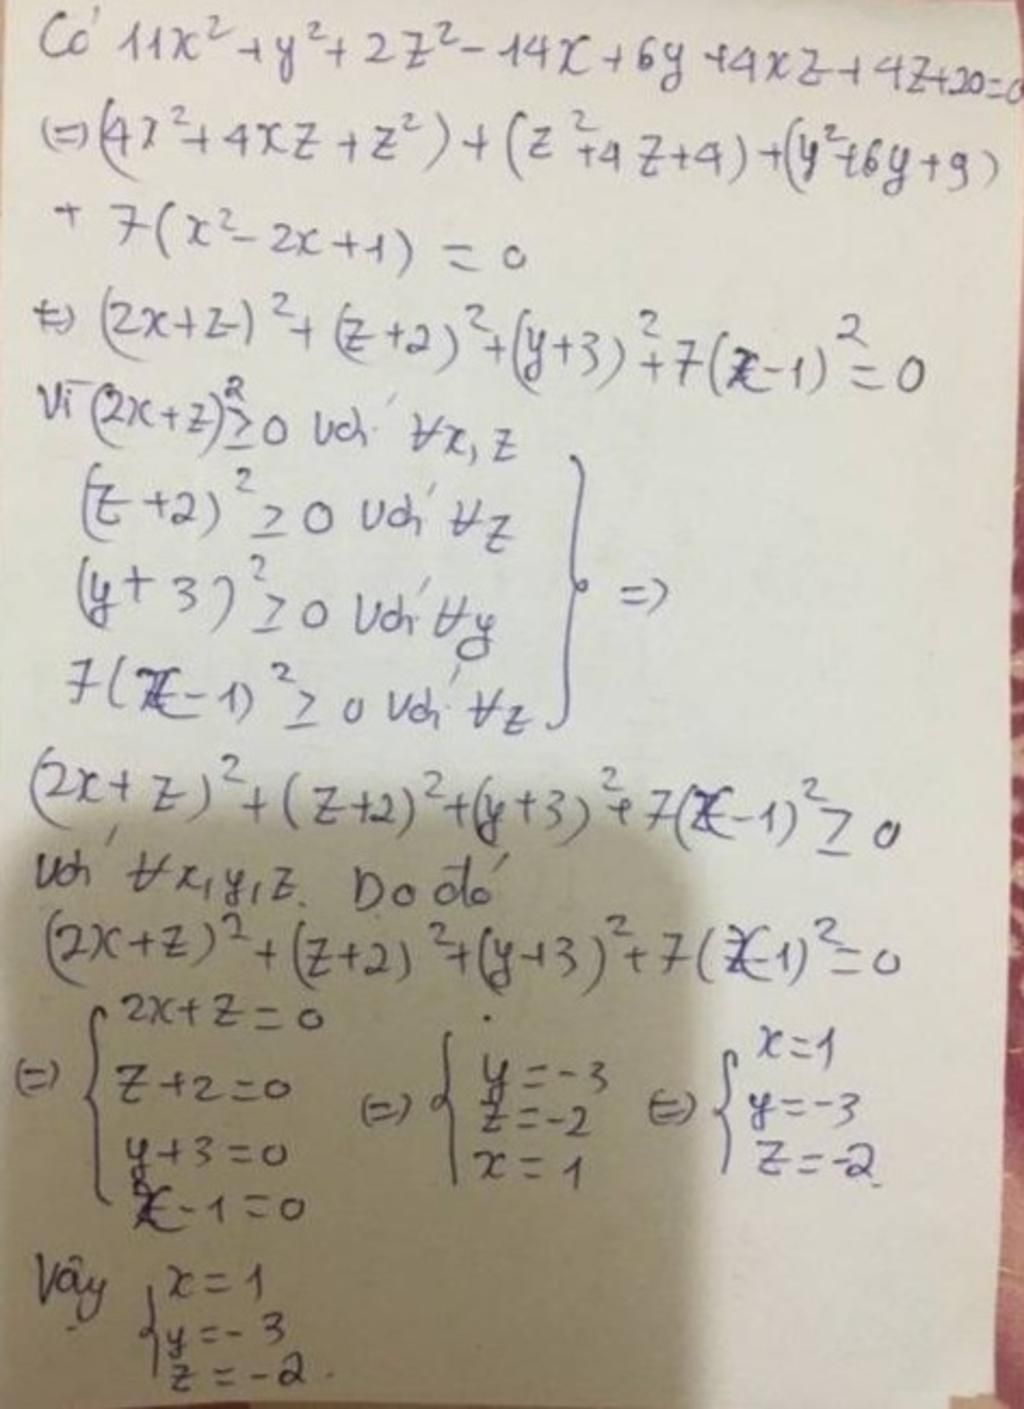 Có 11x² + y² + 2z² - 14x + 6y + 4xz + 4z + 20 = 0
(=) (4x² + 4xz + z²) + (z² + 4z + 4) + (y² + 6y + 9)
+ 7(x² - 2x + 1) = 0
(=) (2x + z)² + (z + 2)² + (y + 3)² + 7(x - 1)² = 0
Vì (2x + z)² ≥ 0 với ∀x, z
(z + 2)² ≥ 0 với ∀z
(y + 3)² ≥ 0 với ∀y
7(x - 1)² ≥ 0 với ∀z
} =>
(2x + z)² + (z + 2)² + (y + 3)² + 7(x - 1)² ≥ 0
với ∀x, y, z. Do đó
(2x + z)² + (z + 2)² + (y + 3)² + 7(x - 1)² = 0
(=) { 2x + z = 0
z + 2 = 0
y + 3 = 0
x - 1 = 0
(=) { y = -3
z = -2
x = 1
(=) { x = 1
y = -3
z = -2
Vậy { x = 1
y = -3
z = -2.